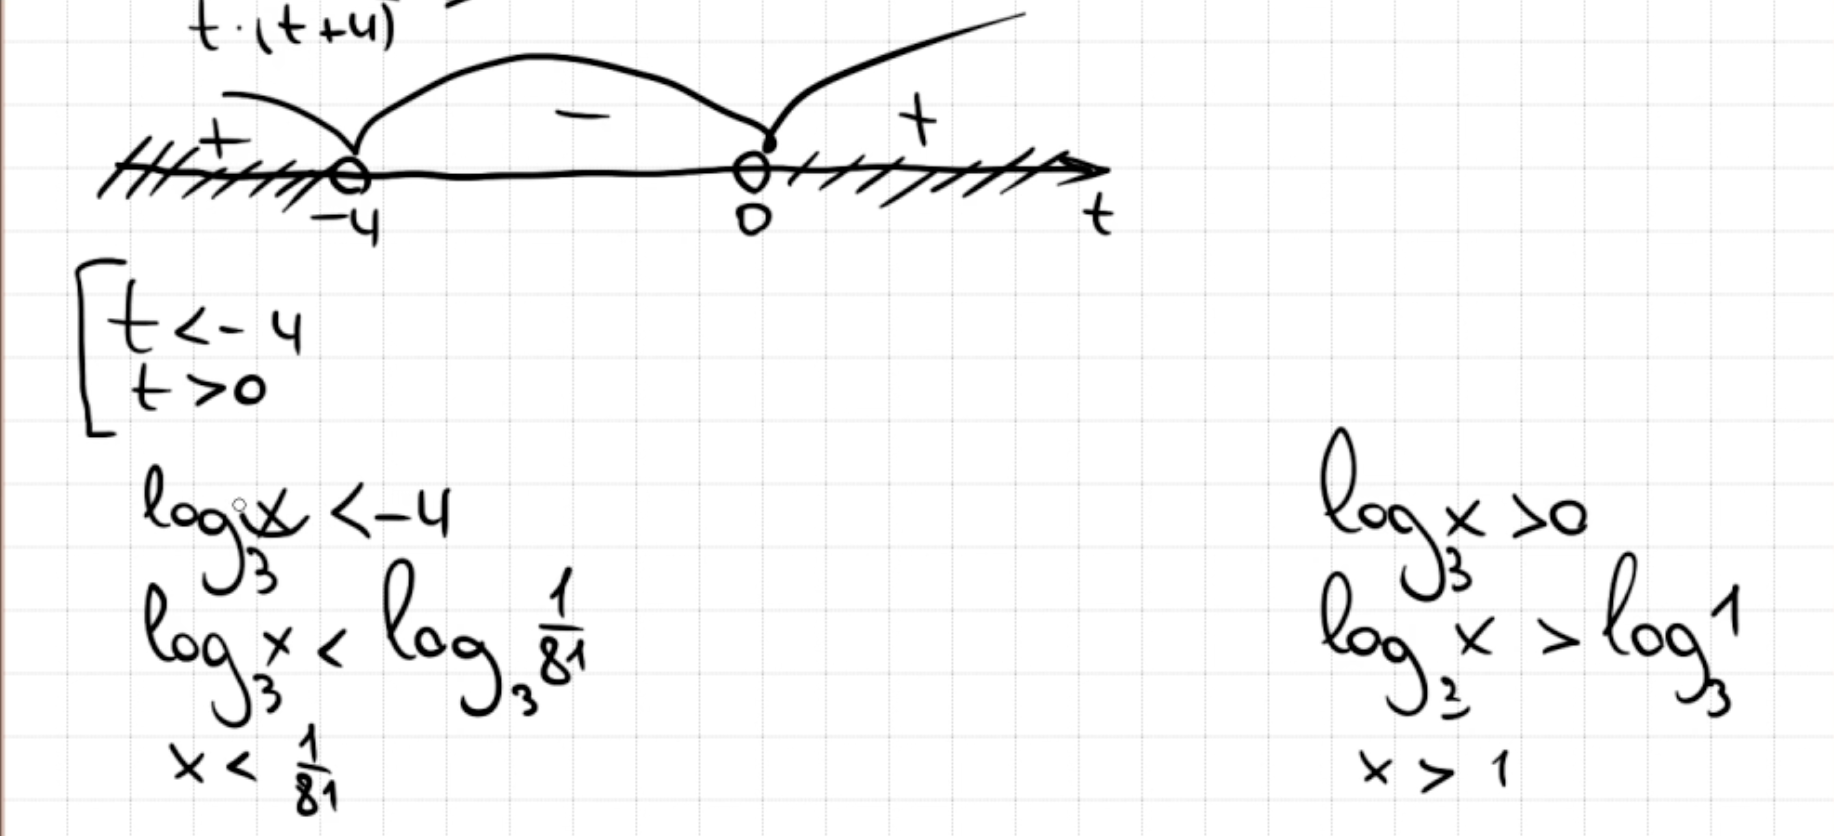 t·(t+4)
+ − +
−4 0 t
t<-4
t>0
log₃x <-4
log₃x < log₃ 1/81
x < 1/81
log₃x >0
log₃x > log₃1
x > 1